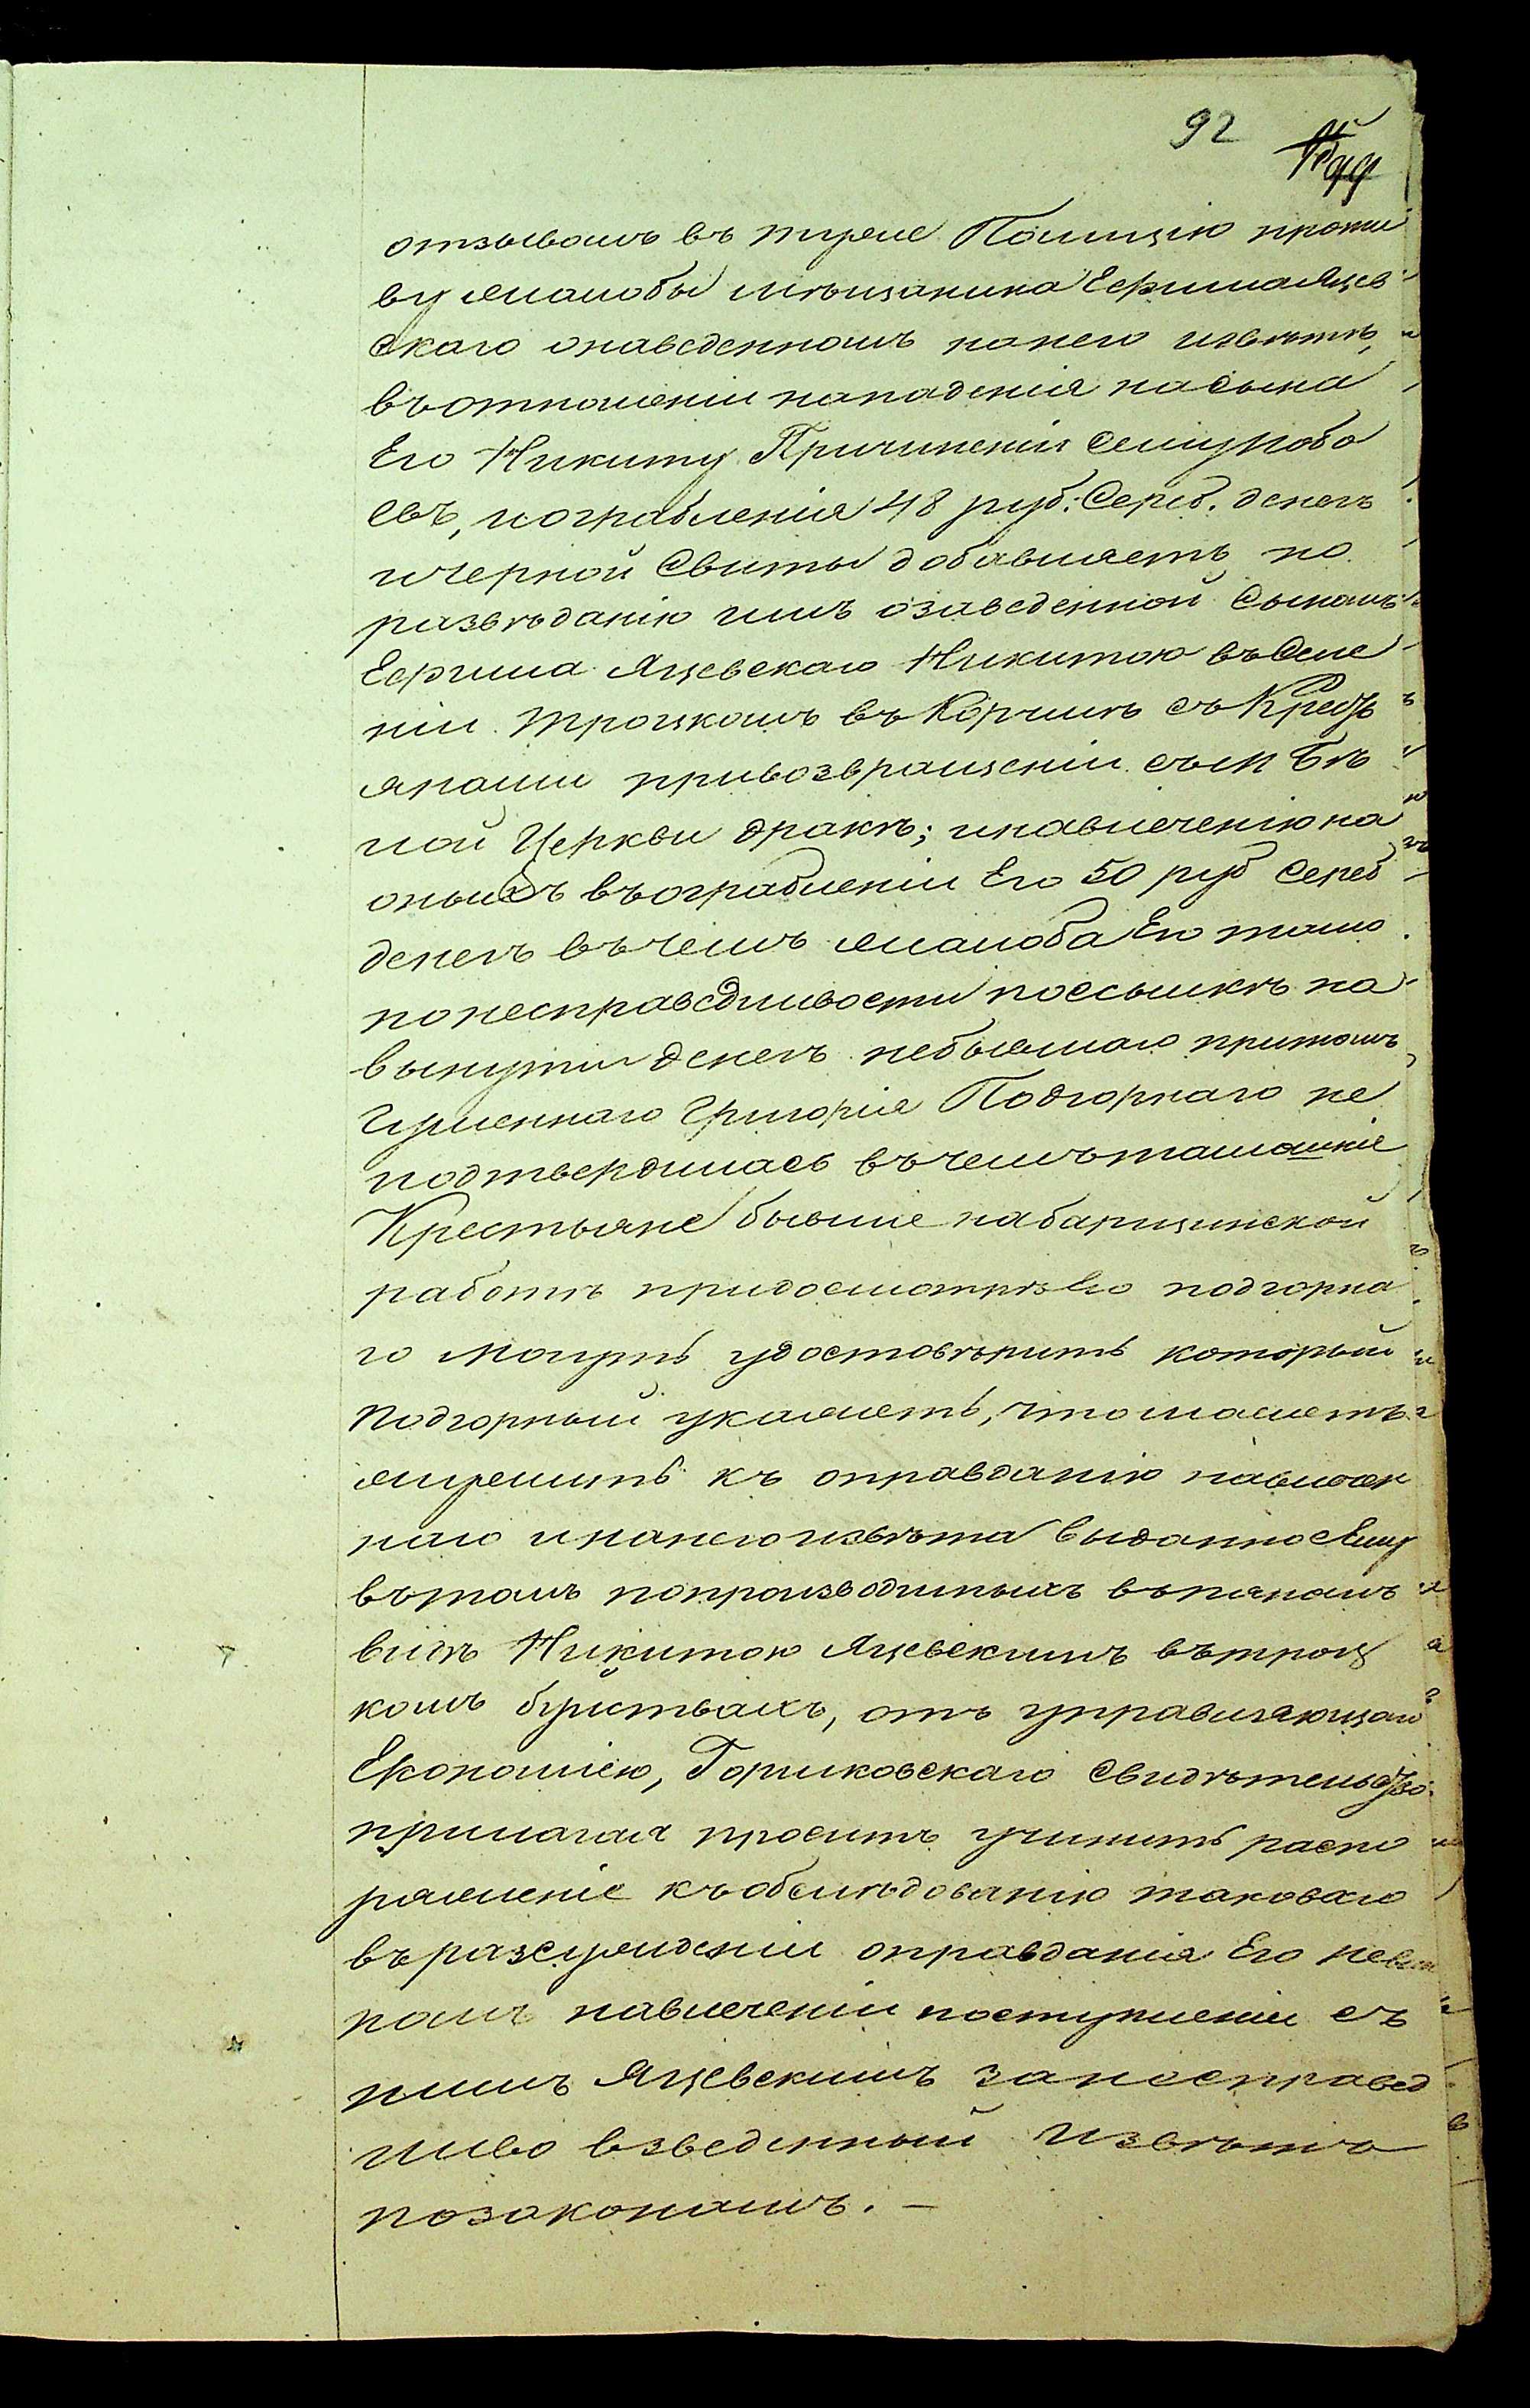 92
отзывомъ въ туже Полицію проти
ву жалобы мѣщанина Ефима Яцев
скаго о наведенномъ на него извѣтѣ,
въ отношеніи нападенія на сына
Его Никиту Причиненіи Ему побо
евъ, и ограбленія 48 руб: Сереб. денегъ
и черной Свиты добавляетъ по
развѣданію имъ о заведенной Сыномъ
Ефима Яцевскаго Никитою въ Селе
ніи Троцкомъ въ Корчмѣ съ Кресть
янами при возвращеніи съ
ной Церкви дракѣ; и навлеченію на
оныхъ въ ограбленіи Его 50 руб Сереб
денегъ въ чемъ жалоба Его тамо
по несправедливости по ссылкѣ на
вынутіи денегъ небывшаго при томъ
Гуменнаго Григорія Подгорнаго не
подтвердилась въ чемъ тамошніе
Крестьяне бывшіе на барщинской
работѣ при досмотрѣ Его подгорна
го могутъ удостовѣрить который
Подгорный укажетъ, что можетъ
служить къ оправданію навлечен
наго и на него извѣта выданное Ему
въ томъ по производимымъ въ пьяномъ
видѣ Никитою Яцевскимъ въ троц
комъ буйствахъ, отъ управляющаго
Економіею, Горжковскаго Свидѣтельство
прилагая проситъ учинить распо
ряженіе къ обслѣдованію таковаго
въ разсужденіи оправданія Его
номъ навлеченіи поступленіи съ
нимъ Яцевскимъ за несправед
ливо взведенный Извѣтъ
по законамъ. —